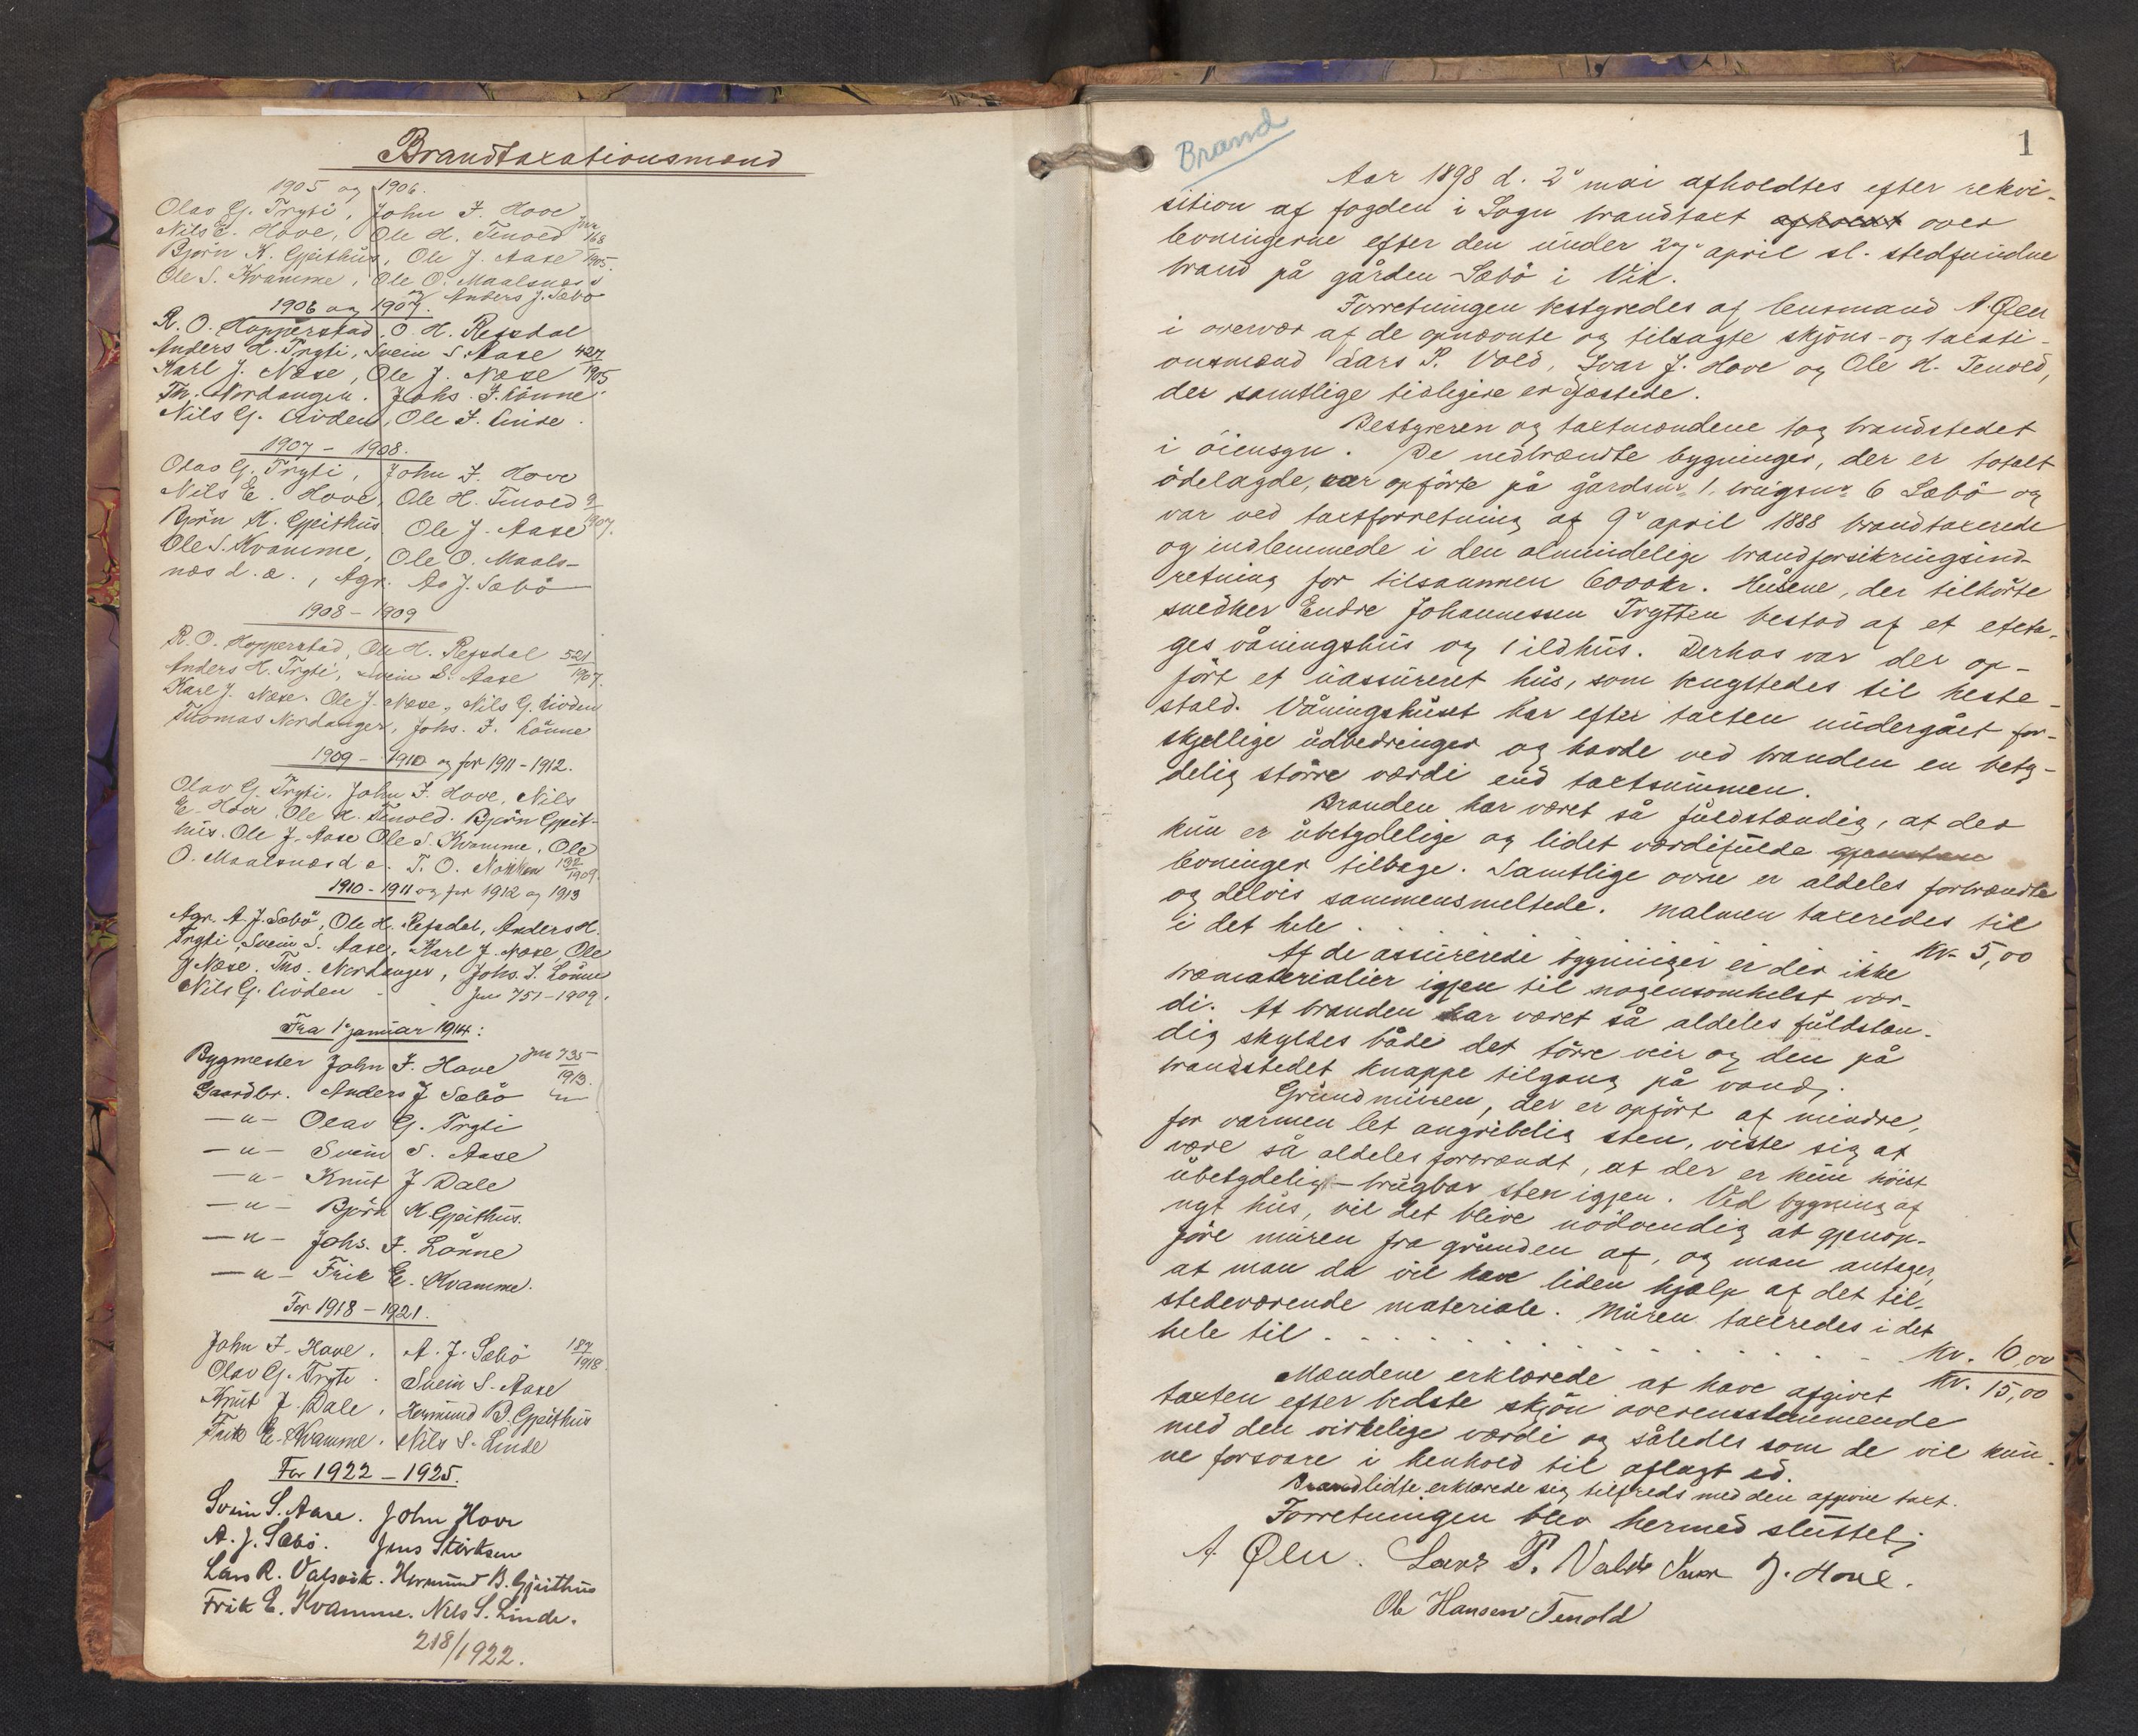 Brandtaxationsmænd
1905 og 1906.
Olav G. Trygti, John J. Hove
Nils E. Hove, Ole H. Tenold Jnr 168
Björn K. Gjeithüs, Ole J. Aase 1905.
Ole S. Kvamme, Ole O. Maalsnæs d
og Anders J. Sæbö
1906 og 1907.
R. O. Hopperstad, O. H. Refsdal
Anders H. Trygti, Svein S. Aase 427
Karl J. Næse, Ole J. Næse 1905
Th. Nordanger. Johs. J. Lönne.
Nils G. Livden, Ole J. Linde.
1907 - 1908.
Olav G. Trygti, John J. Hove
Nils E. Hove, Ole H. Tenold 9
Björn K. Gjeithüs. Ole J. Aase 1907.
Ole S. Kvamme, Ole O. Maals-
næs d. æ., Agr. As J. Sæbö
1908 - 1909
R. O. Hopperstad, Ole H. Refsdal 521
Anders H. Trygti, Svein S. Aase 1907.
Karl J. Næse. Ole J. Næse, Nils G. Livden
Thomas Nordanger, Johs. J. Lönne
1909 - 1910 og for 1911 - 1912.
Olav G. Trygti. John J. Hove, Nils
E. Hove. Ole H. Tenold. Björn Gjeit-
hüs. Ole J. Aase Ole S. Kvamme, Ole
O. Maalsnæs d æ. T. O. Nokken 192
1909.
1910 - 1911 og for 1912 og 1913
Agr. A. J. Sæbö, Ole H. Refsdal, Anders H.
Trygti, Svein S. Aase, Karl J. Næse, Ole
J Næse. Ths. Nordanger, Johs. J. Lönne
Nils G. Livden Jnr 751 - 1909.
Fra 1 januar 1914:
Bygmester John J. Hove Jnr 735
1913.
Gaardbr. Anders J Sæbö
—"— Olav G. Trygti
—"— Svein S. Aase
—"— Knut J Dale
—"— Björn K Gjeithüs.
—"— Johs. J. Lönne
—"— Frik E. Kvamme.
For 1918 - 1921.
John J. Hove. A. J. Sæbö 187
1918.
Olav G. Trygti. Svein S. Aase
Knut J. Dale. Hermund B. Gjeithüs
Frik E. Kvamme. Nils S. Linde
For 1922 - 1925.
Svein S. Aase. John Hove
A. J. Sæbö. Jens Stirksen
Lars R. Valsvik. Hermund B. Gjeithüs
Frik E. Kvamme. Nils S. Linde.
218/1922.
Brand
1
Aar 1898 d. 2' mai afholdtes efter rekvi-
sition af fogden i Sogn brandtaxt afholdt over
levningerne efter den ünder 27' april sl. stedfundne
brand på gården Sæbö i Vik.
Forretningen bestyredes af lensmand A. Ølen
i overvær af de opnævnte og tilsagte skjöns- og taxati-
onsmænd Lars P. Vold, Ivar J. Hove og Ole H. Tenold,
der samtlige tidligere er edfæstede.
Bestyreren og taxtmændene tog brandstedet
i öiensyn. De nedbrændte bygninger, der er totalt
ödelagde, var opförte på gårdsnr. 1, brugsnr. 6 Sæbö og
var ved taxtforretning af 9' april 1888 brandtaxerede
og indlemmede i den almindelige brandforsikringsind-
retning for tilsammen 6000 kr. Husene, der tilhörte
snedker Endre Johannessen Trytten bestod af et eteta-
ges våningshüs og 1 ildhüs. Derhos var der op-
fört et uassureret hüs, som benyttedes til heste-
stald. Våningshüset har efter taxten undergået for-
skjellige üdbedringer og havde ved branden en bety-
delig större værdi end taxtsummen.
Branden har været så füldstændig, at der
kün er ubetydelige og lidet værdifülde gjenstan
levninger tilbage. Samtlige ovne er aldeles forbrændte
og delvis sammensmeltede. Malmen taxeredes til
i det hele . kr. 5,00
Af de assurerede bygninger er der ikke
træmaterialier igjen til nogensomhelst vær-
di. At branden har været så aldeles füldstæn-
dig skyldes både det törre veir og den på
brandstedet knappe tilgang på vand.
Grundmüren, der er opfört af mindre,
for varmen let angribelig sten, viste sig at
være så aldeles forbrændt, at der er kün höist
übetydelig brügbar sten igjen. Ved bygning af
nyt hüs, vil det blive nödvendig at gjenop-
före müren fra grunden af, og man antager,
at man da vil have liden hjælp af det til-
stedeværende materiale. Müren taxeredes i det
hele til . . . . . . . . . . . . kr. 10,00
kr. 15,00
Mændene erklærede at have afgivet
taxten efter bedste skjön overensstemmende
med den virkelige værdi og således som de vil kün-
ne forsvare i henhold til aflagt ed.
Brandlidte erklærede sig tilfreds med den afgivne taxt.
Forretningen blev hermed sluttet.
A. Ølen. Lars P. Vold Ivar J. Hove.
Ole Hansen Tenold